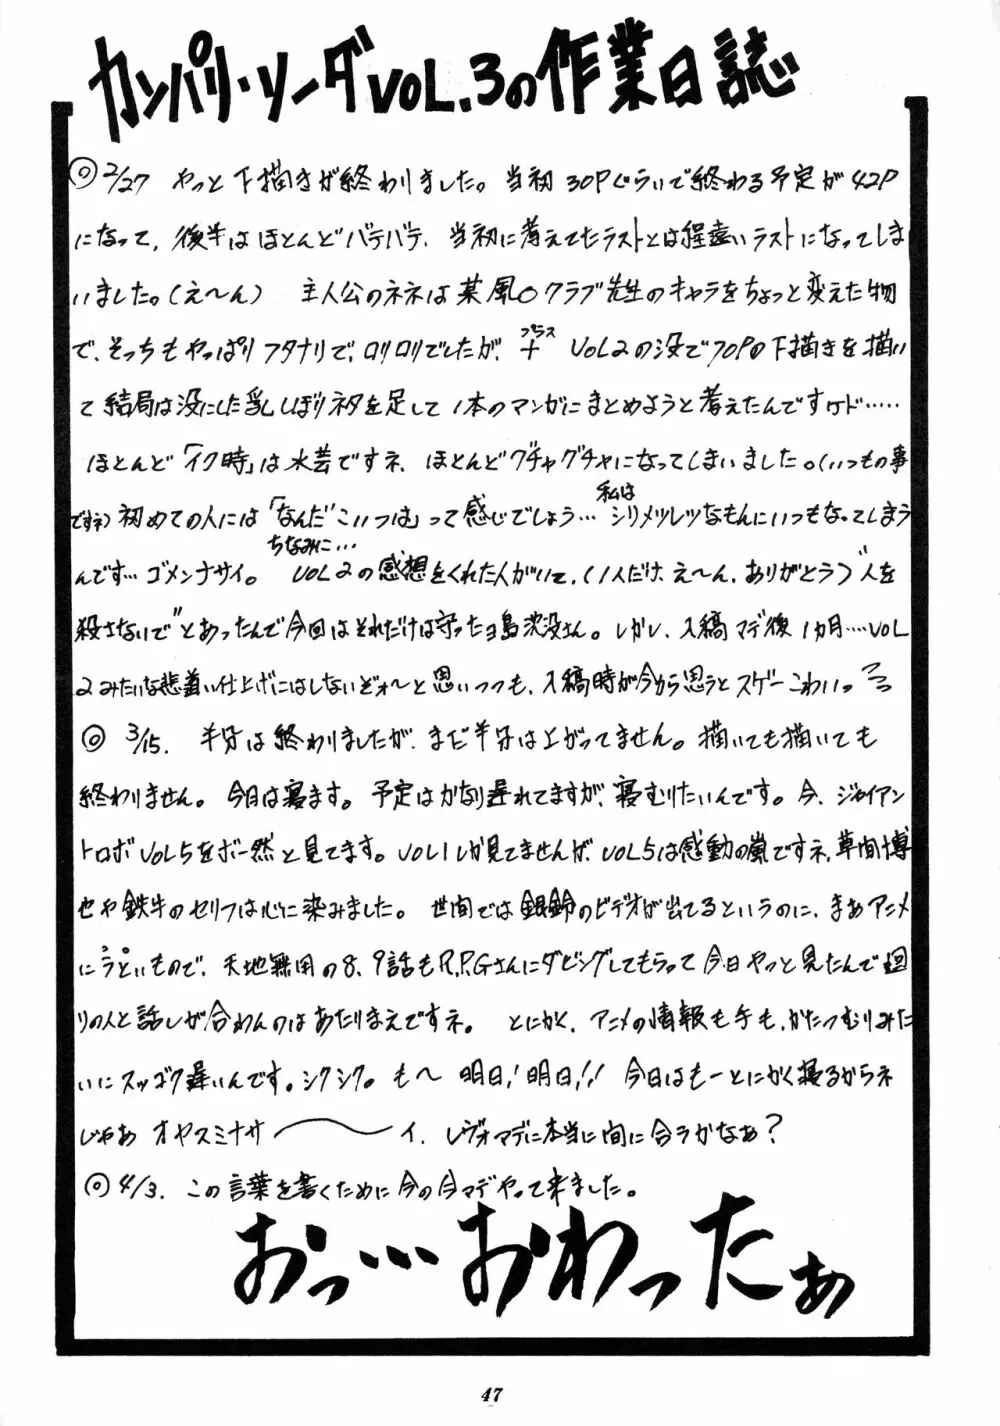 カンパリ・ソーダVOL.3の作業日誌
◎2/27 やっと下描きが終わりました。当初30Pぐらいで終わる予定が42P
になって、後半はほとんどバテバテ、当初に考えてたラストとは程遠いラストになってしま
いました。(え〜ん) 主人公のネネは某風○クラブ先生のキャラをちょっと変えた物
で、そっちもやっぱりフタナリで、ロリロリでしたが、+プラス VOL2の没で70Pの下描きを描い
て結局は没にした乳しぼりネタを足して1本のマンガにまとめようと考えたんですケド……
ほとんど「イク時」は水芸ですネ、ほとんどグチャグチャになってしまいました。(いつもの事
ですネ)初めての人には「なんだこいつは」って感じでしょう…私はシリメツレツなもんにいつもなってしまう
んです…ゴメンナサイ。ちなみに…VOL2の感想をくれた人がいて、(1人だけ、え〜ん、ありがとう)"人を
殺さないで"とあったんで今回はそれだけは守ったヨ島沈没さん。しかし、入稿マデ後1カ月……VOL
2みたいな悲惨い仕上げにはしないぞォ〜と思いつつも、入稿時が今から思うとスゲーこわいっ
◎3/15. 半分は終わりましたが、まだ半分は上がってません。描いても描いても
終わりません。今日は寝ます。予定はかなり遅れてますが、寝むりたいんです。今、ジャイアン
トロボVOL5をボー然と見てます。VOL1しか見てませんが、VOL5は感動の嵐ですネ、草間博
士や鉄牛のセリフは心に染みました。世間では銀鈴のビデオが出てるというのに、まあアニメ
にうといもので、天地無用の8、9話もR.P.Gさんにダビングしてもらって今日やっと見たんで廻
りの人と話しが合わんのはあたりまえですネ。とにかく、アニメの情報も手も、かたつむりみた
いにスッゴク遅いんです。シクシク。も〜 明日!明日!! 今日はもーとにかく寝るからネ
じゃあ オヤスミナサ〜イ、レヴォマデに本当に間に合うかなぁ?
◎4/3. この言葉を書くために今の今マデやって来ました。
おっ…おわったぁ
47